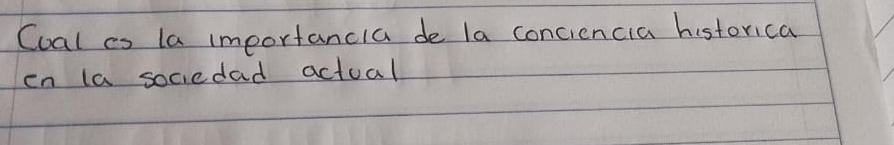 Cual es la importancia de la conciencia historica
en la sociedad actual